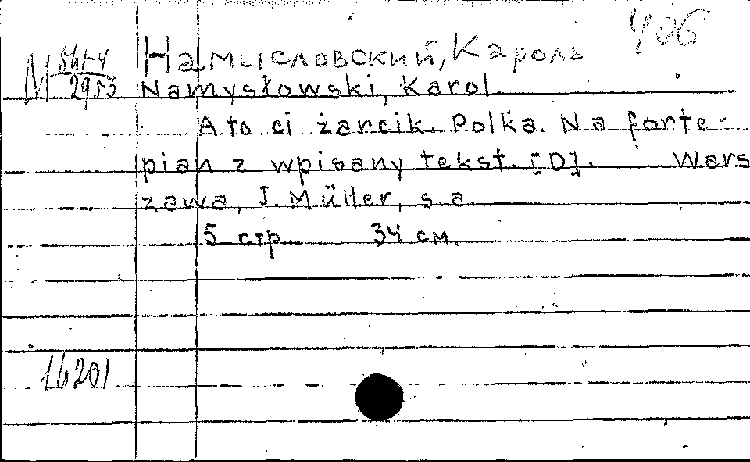 Намысловский, Кароль 406
М 541-4
2953
Namysłowski, Karol.
A to ci żarcik. Polka. Na forte-
pian z wpisany tekst. [D]. Wars
zawa, J. Müller, s.a.
5 стр. 34 см.
16201